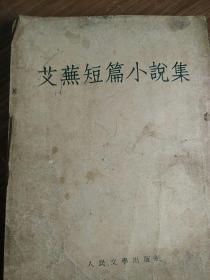 艾蕪短篇小說集
人民文學出版社